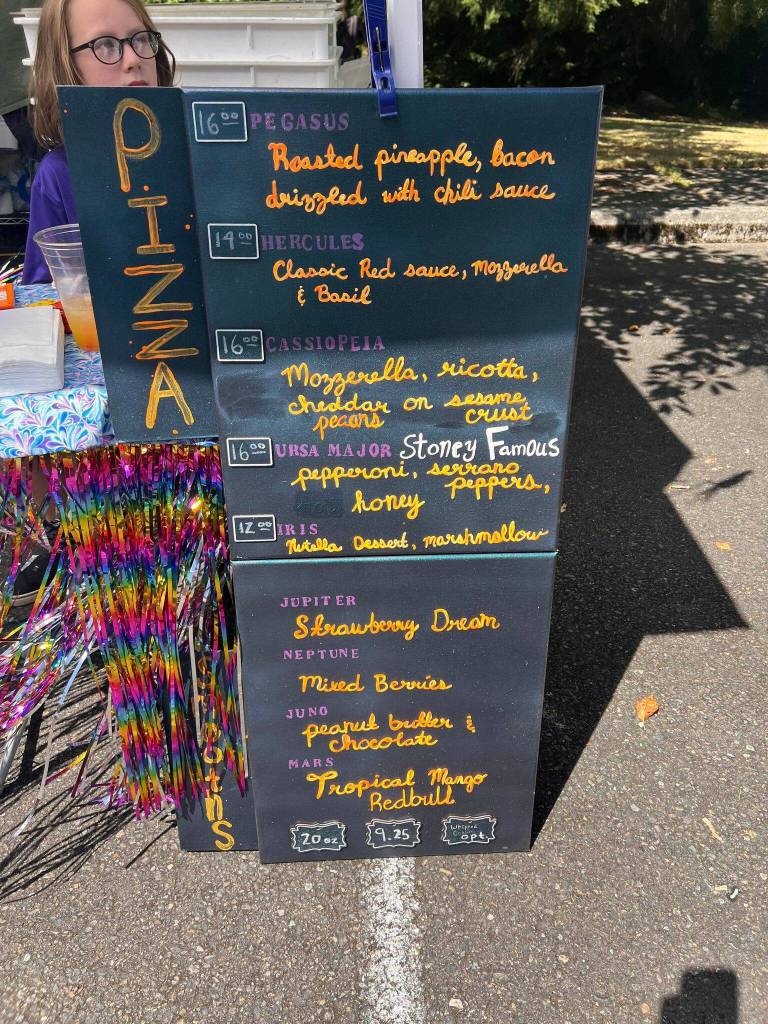 PIZZA
16.00 PEGASUS
Roasted pineapple, bacon
drizzled with chili sauce
14.00 HERCULES
Classic Red sauce, Mozzerella
& Basil
16.00 CASSIOPEIA
Mozzerella, ricotta,
cheddar on sesame
pecans crust
16.00 URSA MAJOR Stoney Famous
pepperoni, serrano
peppers,
honey
12.00 IRIS
Nutella Dessert, marshmallow
JUPITER
Strawberry Dream
NEPTUNE
Mixed Berries
JUNO
peanut butter &
chocolate
MARS
Tropical Mango
Redbull
20 oz 9.25 Whipped
opt.